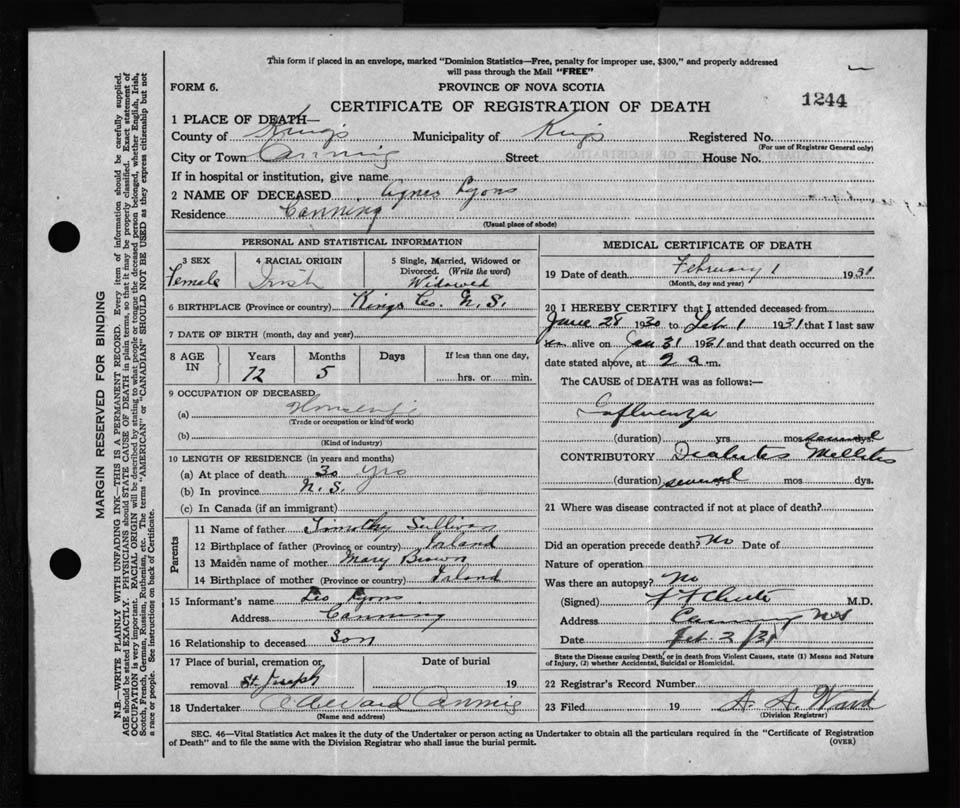 This form if placed in an envelope, marked "Dominion Statistics—Free, penalty for improper use, $300," and properly addressed
will pass through the Mail "FREE"
FORM 6.
PROVINCE OF NOVA SCOTIA
CERTIFICATE OF REGISTRATION OF DEATH
1244
1 PLACE OF DEATH—
County of Kings Municipality of Kings Registered No.
(For use of Registrar General only)
City or Town Canning Street House No.
If in hospital or institution, give name
2 NAME OF DECEASED Agnes Lyons
Residence Canning
(Usual place of abode)
PERSONAL AND STATISTICAL INFORMATION
3 SEX
Female
4 RACIAL ORIGIN
Irish
5 Single, Married, Widowed or
Divorced. (Write the word)
Widowed
6 BIRTHPLACE (Province or country) Kings Co. N.S.
7 DATE OF BIRTH (month, day and year)
8 AGE IN
Years Months Days If less than one day,
72 5 hrs. or min.
9 OCCUPATION OF DECEASED
(a) Housewife
(Trade or occupation or kind of work)
(b)
(Kind of industry)
10 LENGTH OF RESIDENCE (in years and months)
(a) At place of death 30 yrs
(b) In province N.S.
(c) In Canada (if an immigrant)
Parents
11 Name of father Timothy Sullivan
12 Birthplace of father (Province or country) Irland
13 Maiden name of mother Mary Brown
14 Birthplace of mother (Province or country) Irland
15 Informant's name Leo Lyons
Address Canning
16 Relationship to deceased Son
17 Place of burial, cremation or
removal St. Joseph
Date of burial
19
18 Undertaker Canning
(Name and address)
MEDICAL CERTIFICATE OF DEATH
19 Date of death February 1 1931
(Month, day and year)
20 I HEREBY CERTIFY that I attended deceased from
June 28 1930 to Feb 1 1931 that I last saw
alive on Jan 31 1931 and that death occurred on the
date stated above, at 2 a.m.
The CAUSE of DEATH was as follows:—
Influenza
(duration) yrs. mos. dys.
CONTRIBUTORY Diabetes Mellitus
(duration) several mos dys.
21 Where was disease contracted if not at place of death?
Did an operation precede death? No Date of
Nature of operation
Was there an autopsy? No
(Signed) M.D.
Address Canning NS
Date Feb 2/31
State the Disease causing Death, or in death from Violent Causes, state (1) Means and Nature
of Injury, (2) whether Accidental, Suicidal or Homicidal.
22 Registrar's Record Number
23 Filed 19 A. A. Ward
(Division Registrar)
SEC. 46—Vital Statistics Act makes it the duty of the Undertaker or person acting as Undertaker to obtain all the particulars required in the "Certificate of Registration
of Death" and to file the same with the Division Registrar who shall issue the burial permit.
(OVER)
MARGIN RESERVED FOR BINDING
N.B.—WRITE PLAINLY WITH UNFADING INK—THIS IS A PERMANENT RECORD. Every item of information should be carefully supplied.
AGE should be stated EXACTLY. PHYSICIANS should STATE CAUSE OF DEATH in plain terms, so that it may be properly classified. Exact statement of
OCCUPATION is very important. RACIAL ORIGIN will be described by stating to what people or tongue the deceased person belonged, whether English, Irish,
Scotch, French, German, Russian, Ruthenian, etc. The terms "AMERICAN" or "CANADIAN" SHOULD NOT BE USED as they express citizenship but not
a race or people. See instructions on back of Certificate.